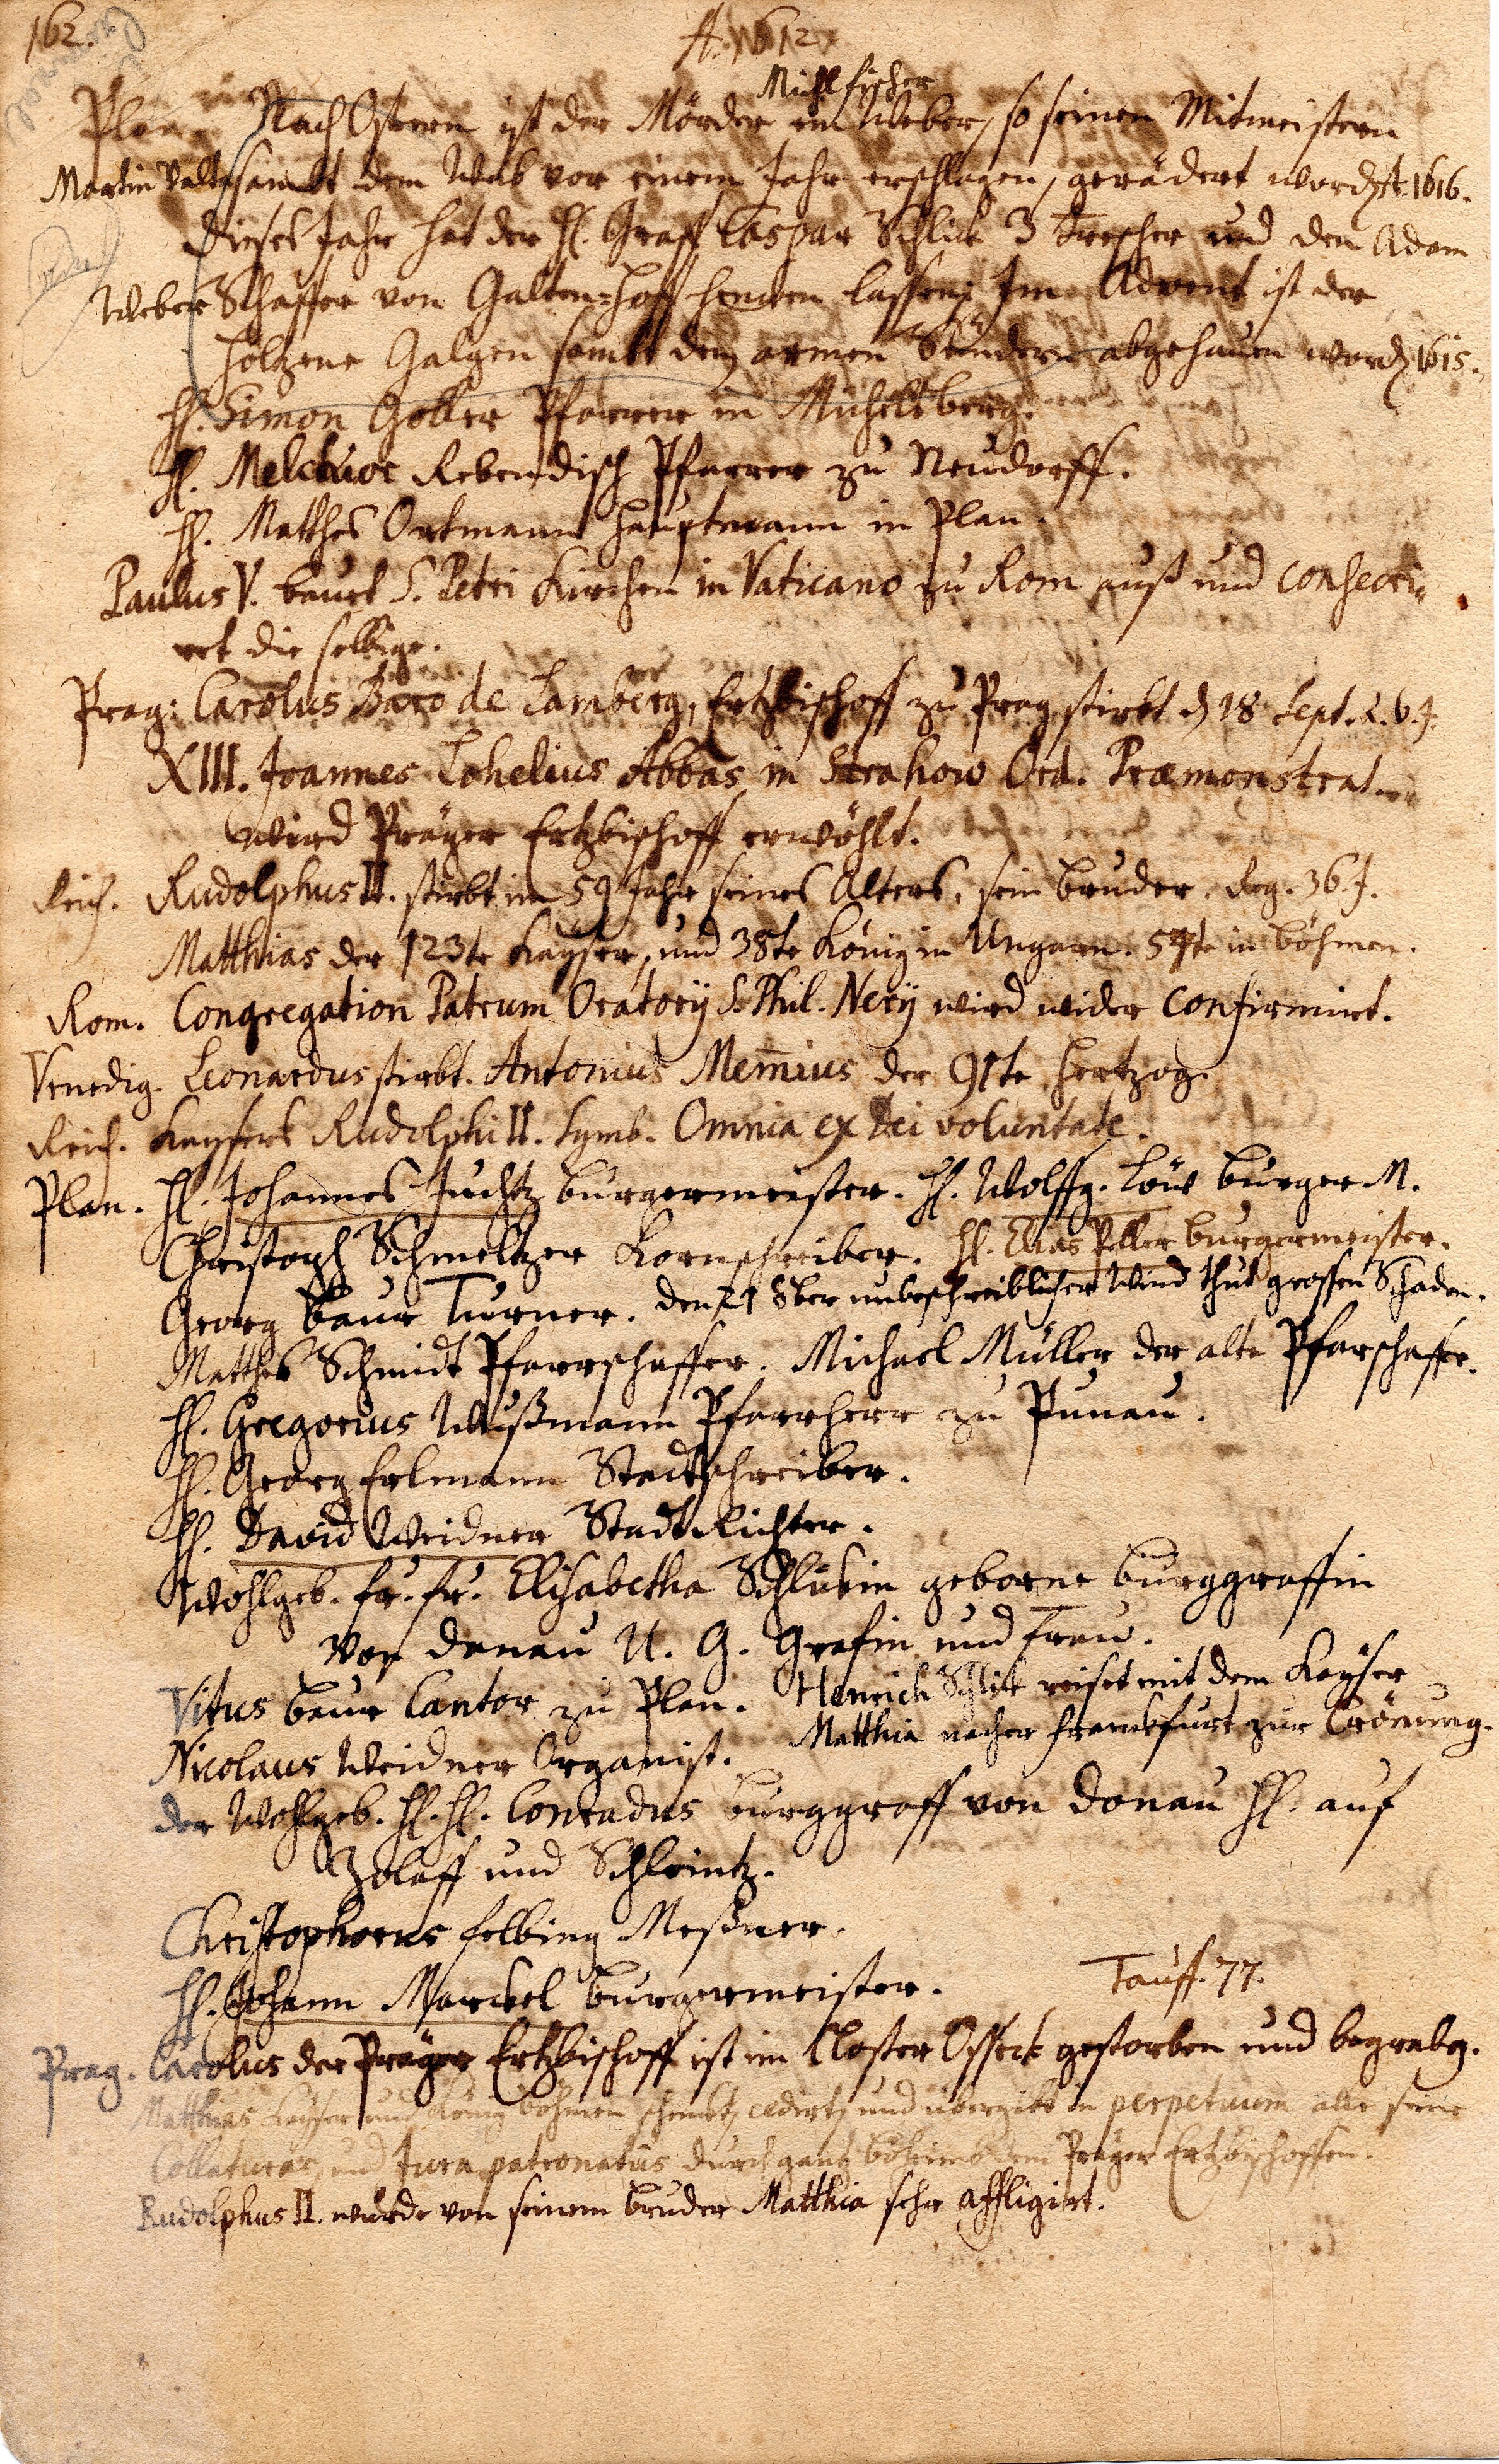 162.
A. 1612
Michl fischer
Plan. Nach Ostern ist der Mörder ein Weber, so seinen Mitmeistern
Martin Valt sambt dem Weib vor einem Jahr erschlagen, gerädert word. A. 1616.
Dieses Jahr hat der H. Graff Caspar Schlick 3 Trescher und den Adam
Weber Schaffer von Galtenhoff hencken lassen. Im Advent ist der
holzene Galgen sambt den armen Sündern abgehauen word. 1615.
H. Simon Goller Pfarrer in Michelsberg.
H. Melchior Rebendisch Pfarrer zu Neudorff.
H. Matthes Ortmann Hauptmann in Plan.
Paulus V. bauet S. Petri Kirchen in Vaticano zu Rom auß und consecri-
ret die selbige.
Prag: Carolus Baro de Lamberg, Ertzbischoff zu Prag stirbt d. 18 Sept.
XIII. Joannes Lohelius Abbas in Strahow Ord. Præmonstrat.
wird Präger Ertzbischoff erwöhlt.
Reich. Rudolphus II. stirbt im 59 Jahr seines Alters, sein bruder. Reg. 36. J.
Matthias der 123te Kayser, und 38te König in Ungarn. 54te in böhmen.
Rom. Congregation Patrum Oratorij S. Phil. Nerij wird wider confirmirt.
Venedig. Leonardus stirbt. Antonius Mem̄ius der 91te Hertzog.
Reich. Kaysers Rudolphi II. Symb. Omnia ex Dei voluntate.
Plan. H. Johannes Juchtz burgermeister. H. Wolffg. Löw burger M.
Christoph Schmeltzer Kornschreiber. H. Elias Peller burgermeister.
Georg baur Turner. den 21 8ber unbeschreiblicher Wind thut grossen Schaden.
Matthes Schmidt Pfarrschaffer. Michael Müller der alte Pfarschaffer.
H. Gregorius Wußmann Pfarrherr zu Punau.
H. Georg Erlmann Stadtschreiber.
H. David Weidner Stadt Richter.
Wohlgeb. fr. fr. Elisabetha Schlickin geborne burggraffin
von Donau U. G. Grefin und Frau.
Vitus baur Cantor zu Plan. Henrich Schlik reiset mit dem Kayser
Nicolaus Weidner Organist. Matthia nacher Franckfurt zur Crönung.
der Wohlgeb. H. H. Conradus burggraff von Donau H. auf
Zolaff und Schleintz.
Christophorus felbing Meßner.
H. Johann Marckel burgermeister. Tauff. 77.
Prag. Carolus der Präger Ertzbischoff ist im Closter Osseck gestorben und begrabe.
Matthias Kayser und König böhmen schenckt, cedirt, und übergibt in perpetuum alle seine
Collaturas, und Jura patronatus durch gantz böheimb dem Präger Ertzbischoffen.
Rudolphus II. wurde von seinem bruder Matthia sehr affligirt.